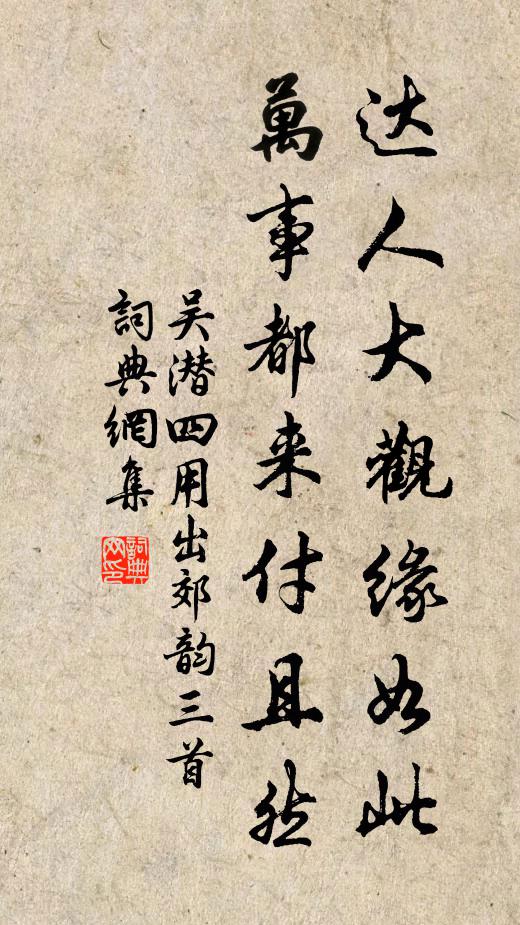 达人大觀缘如此
萬事都来付且然
吴潜四用出郊韵三首
詞典網集
詞典网印